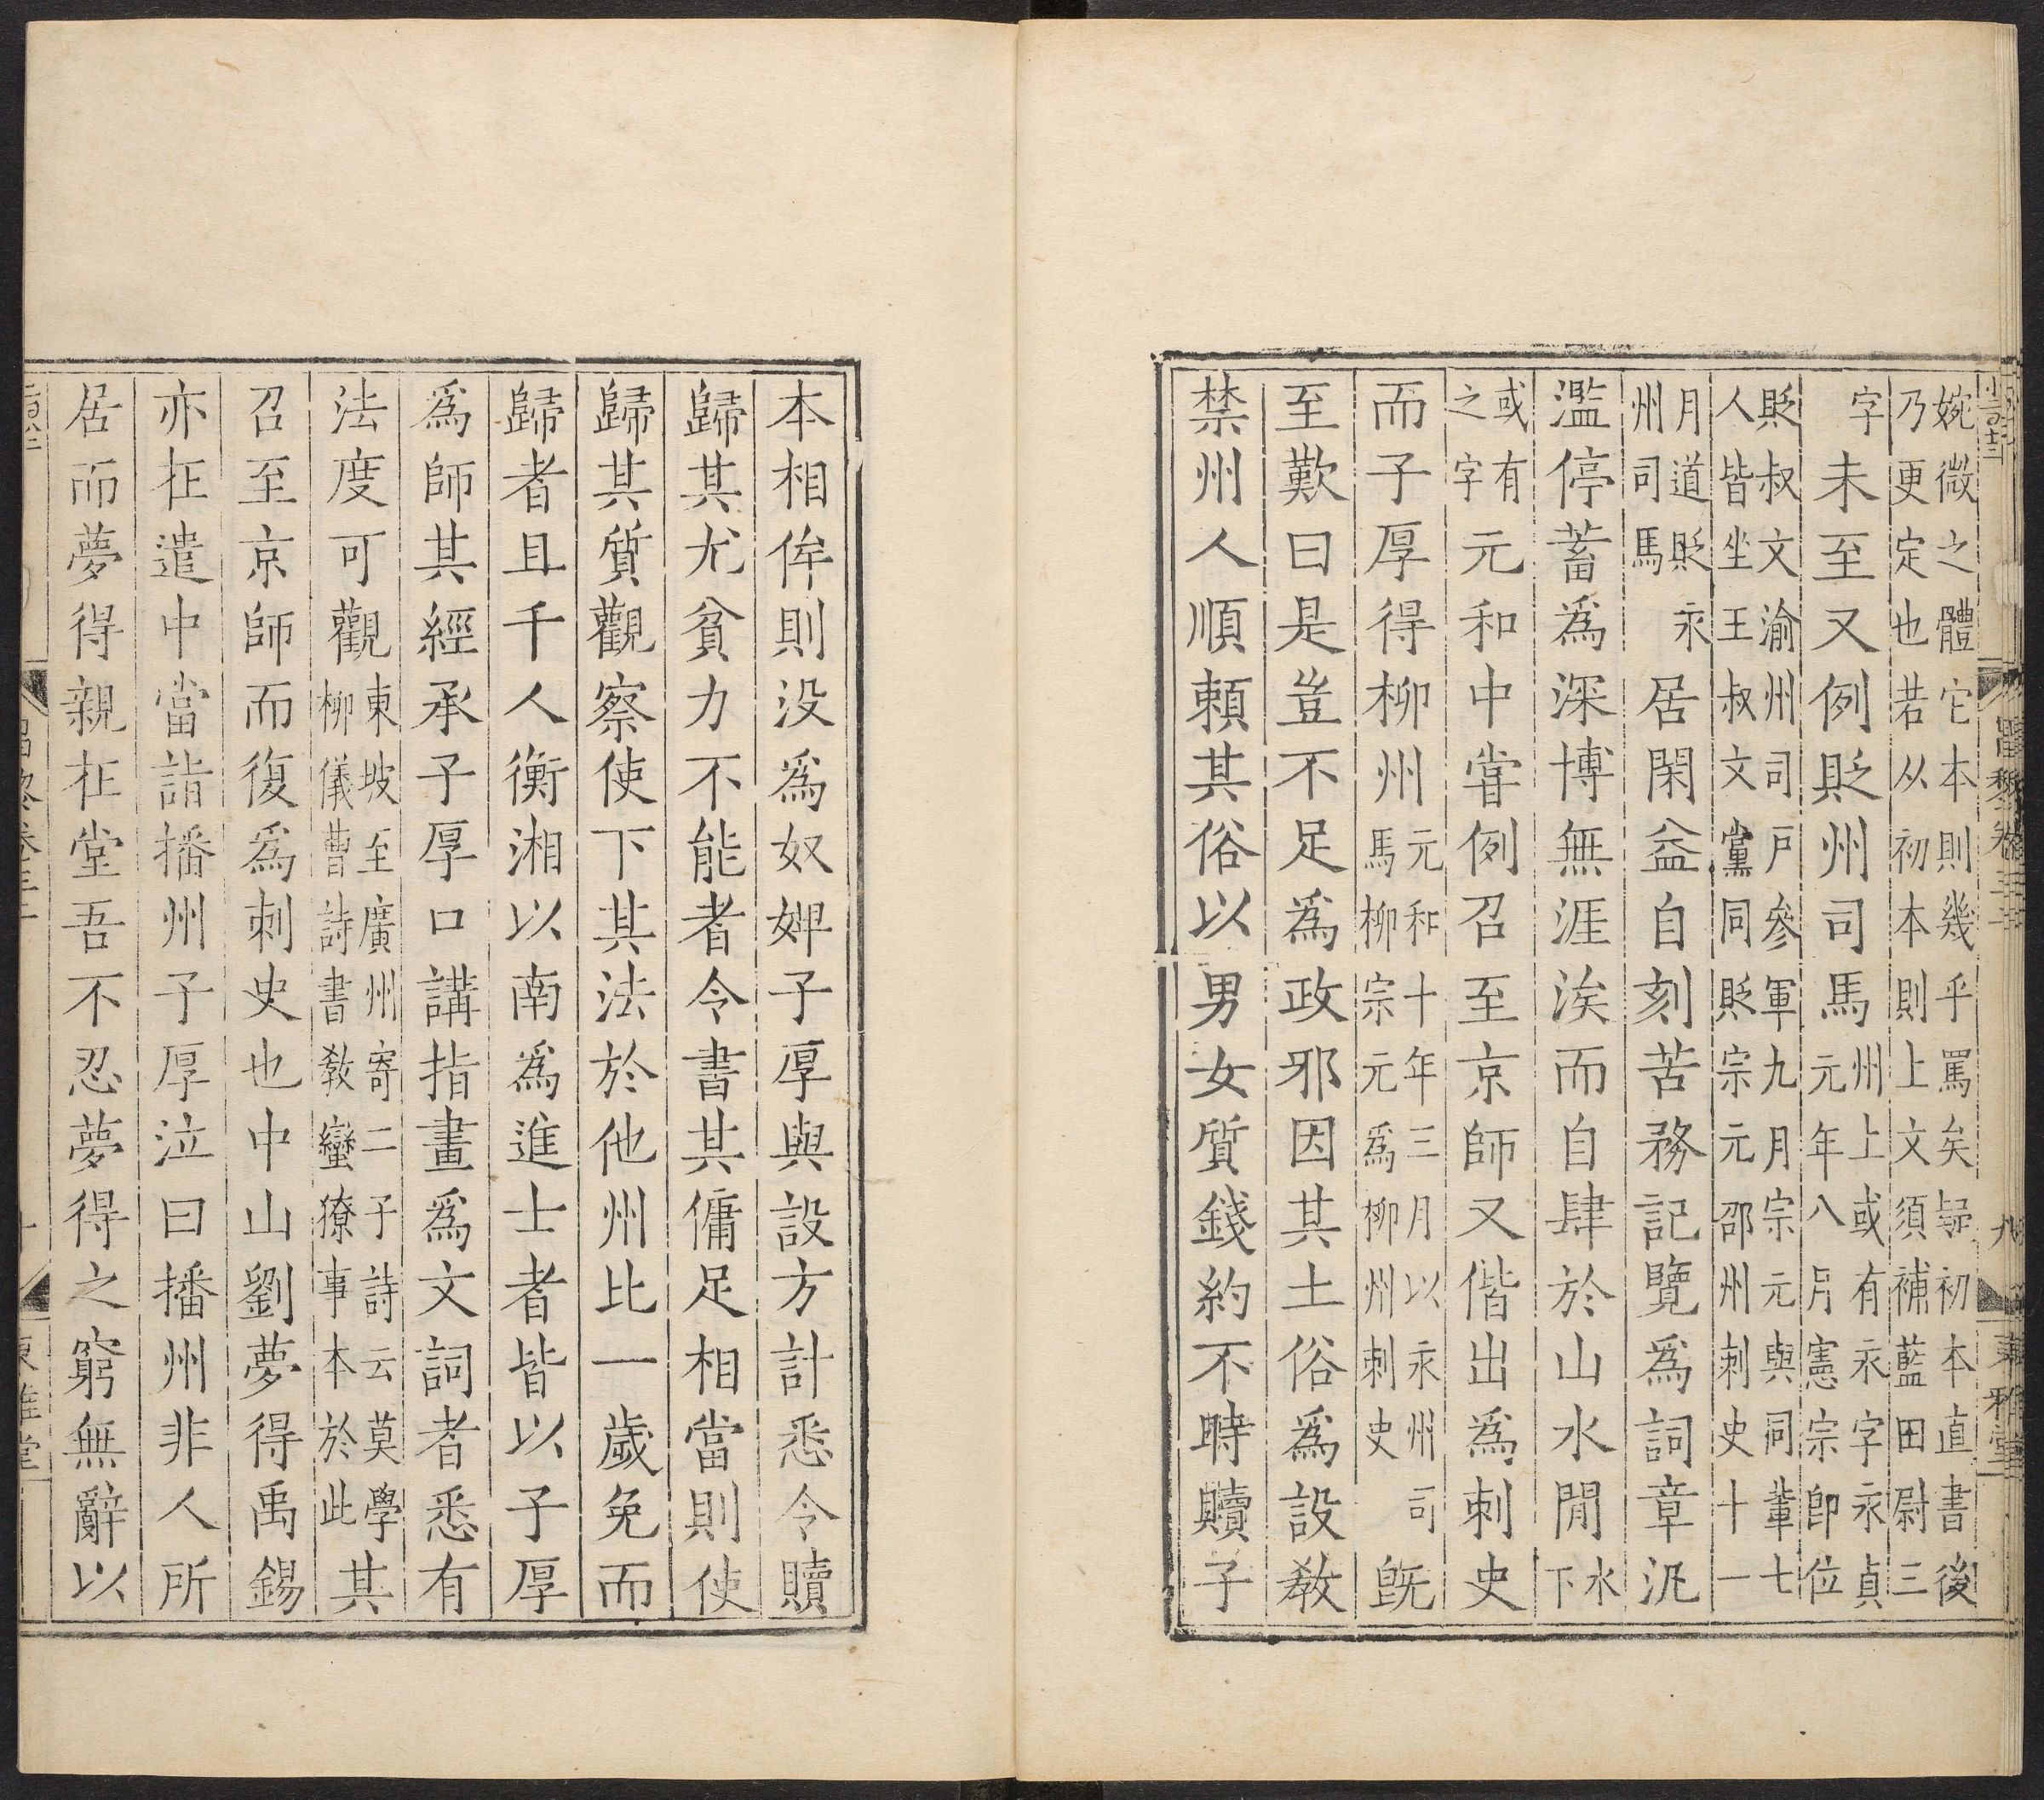 婉微之體它本則幾乎罵矣歸初本直書後
乃更定也若从初本則上文須補藍田尉三
字未至又例貶州司馬州上或有永字永貞元年八月憲宗卽位
貶叔文渝州司戶參軍九月宗元與同輩七
人皆坐王叔文黨同貶宗元邵州刺史十一
月道貶永州司馬居閑益自刻苦務記覽爲詞章汎
濫停蓄爲深博無涯涘而自肆於山水閒水下
或有之字元和中甞例召至京師又偕出爲刺史
而子厚得柳州元和十年三月以永州司馬柳宗元爲柳州刺史旣
至歎曰是豈不足爲政邪因其土俗爲設敎
禁州人順頼其俗以男女質錢約不時贖子
本相侔則没爲奴婢子厚與設方計悉令贖
歸其尤貧力不能者令書其傭足相當則使
歸其質觀察使下其法於他州比一歲免而
歸者且千人衡湘以南爲進士者皆以子厚
爲師其經承子厚口講指畫爲文詞者悉有
法度可觀東坡至廣州寄二子詩云莫學柳儀曹詩書敎蠻獠事本於此其
召至京師而復爲刺史也中山劉夢得禹錫
亦在遣中當詣播州子厚泣曰播州非人所
居而夢得親在堂吾不忍夢得之窮無辭以